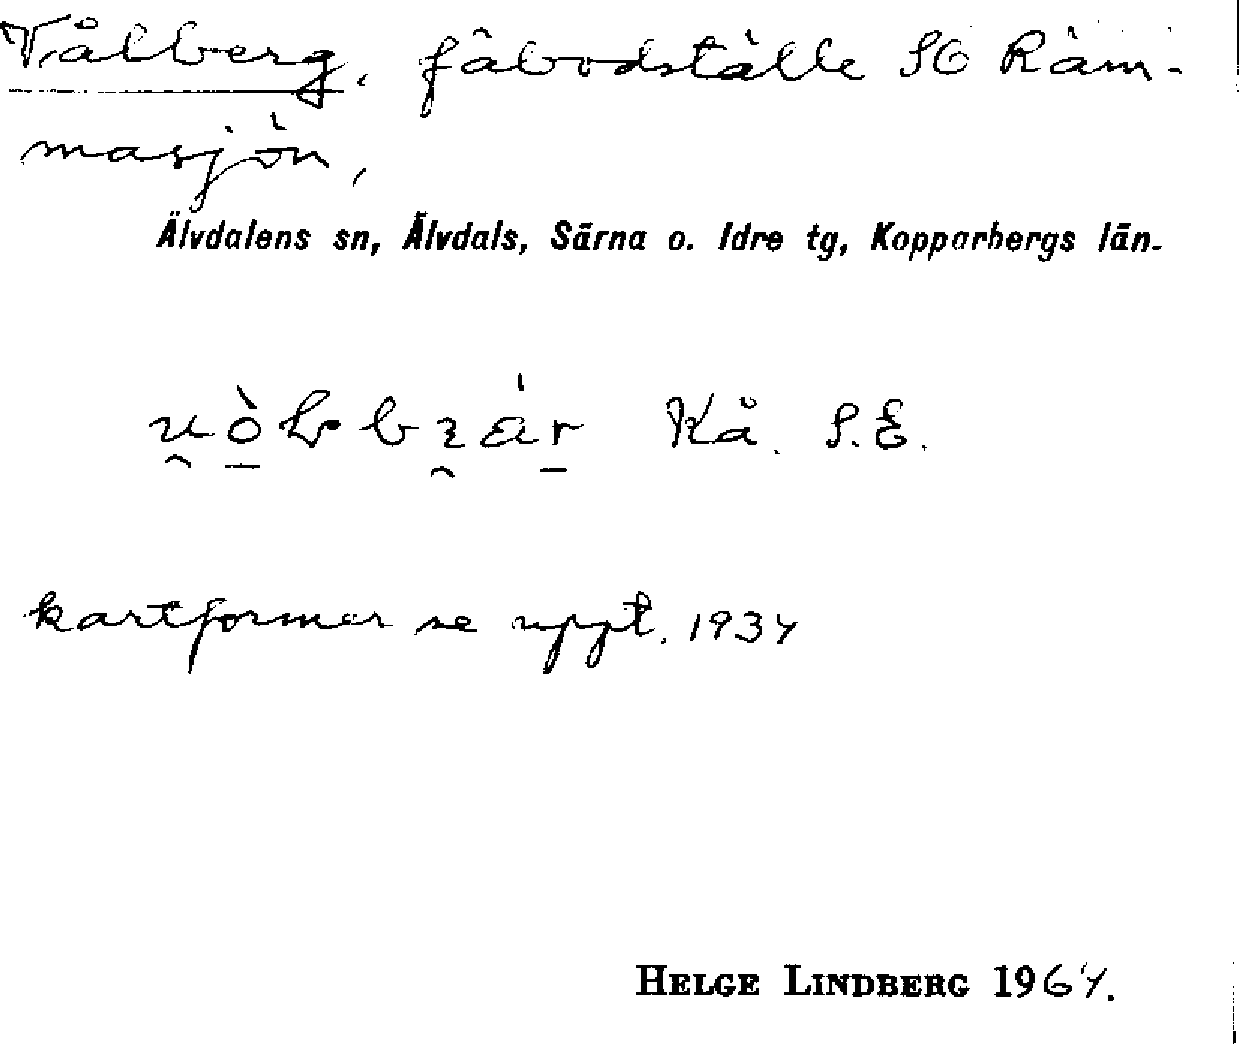 Vålberg, fäbodställe SO Räm-
masjön,
Älvdalens sn, Älvdals, Särna o. Idre tg, Kopparbergs län.
Kå. S.E.
kartformer se uppt. 1934
HELGE LINDBERG 1964.